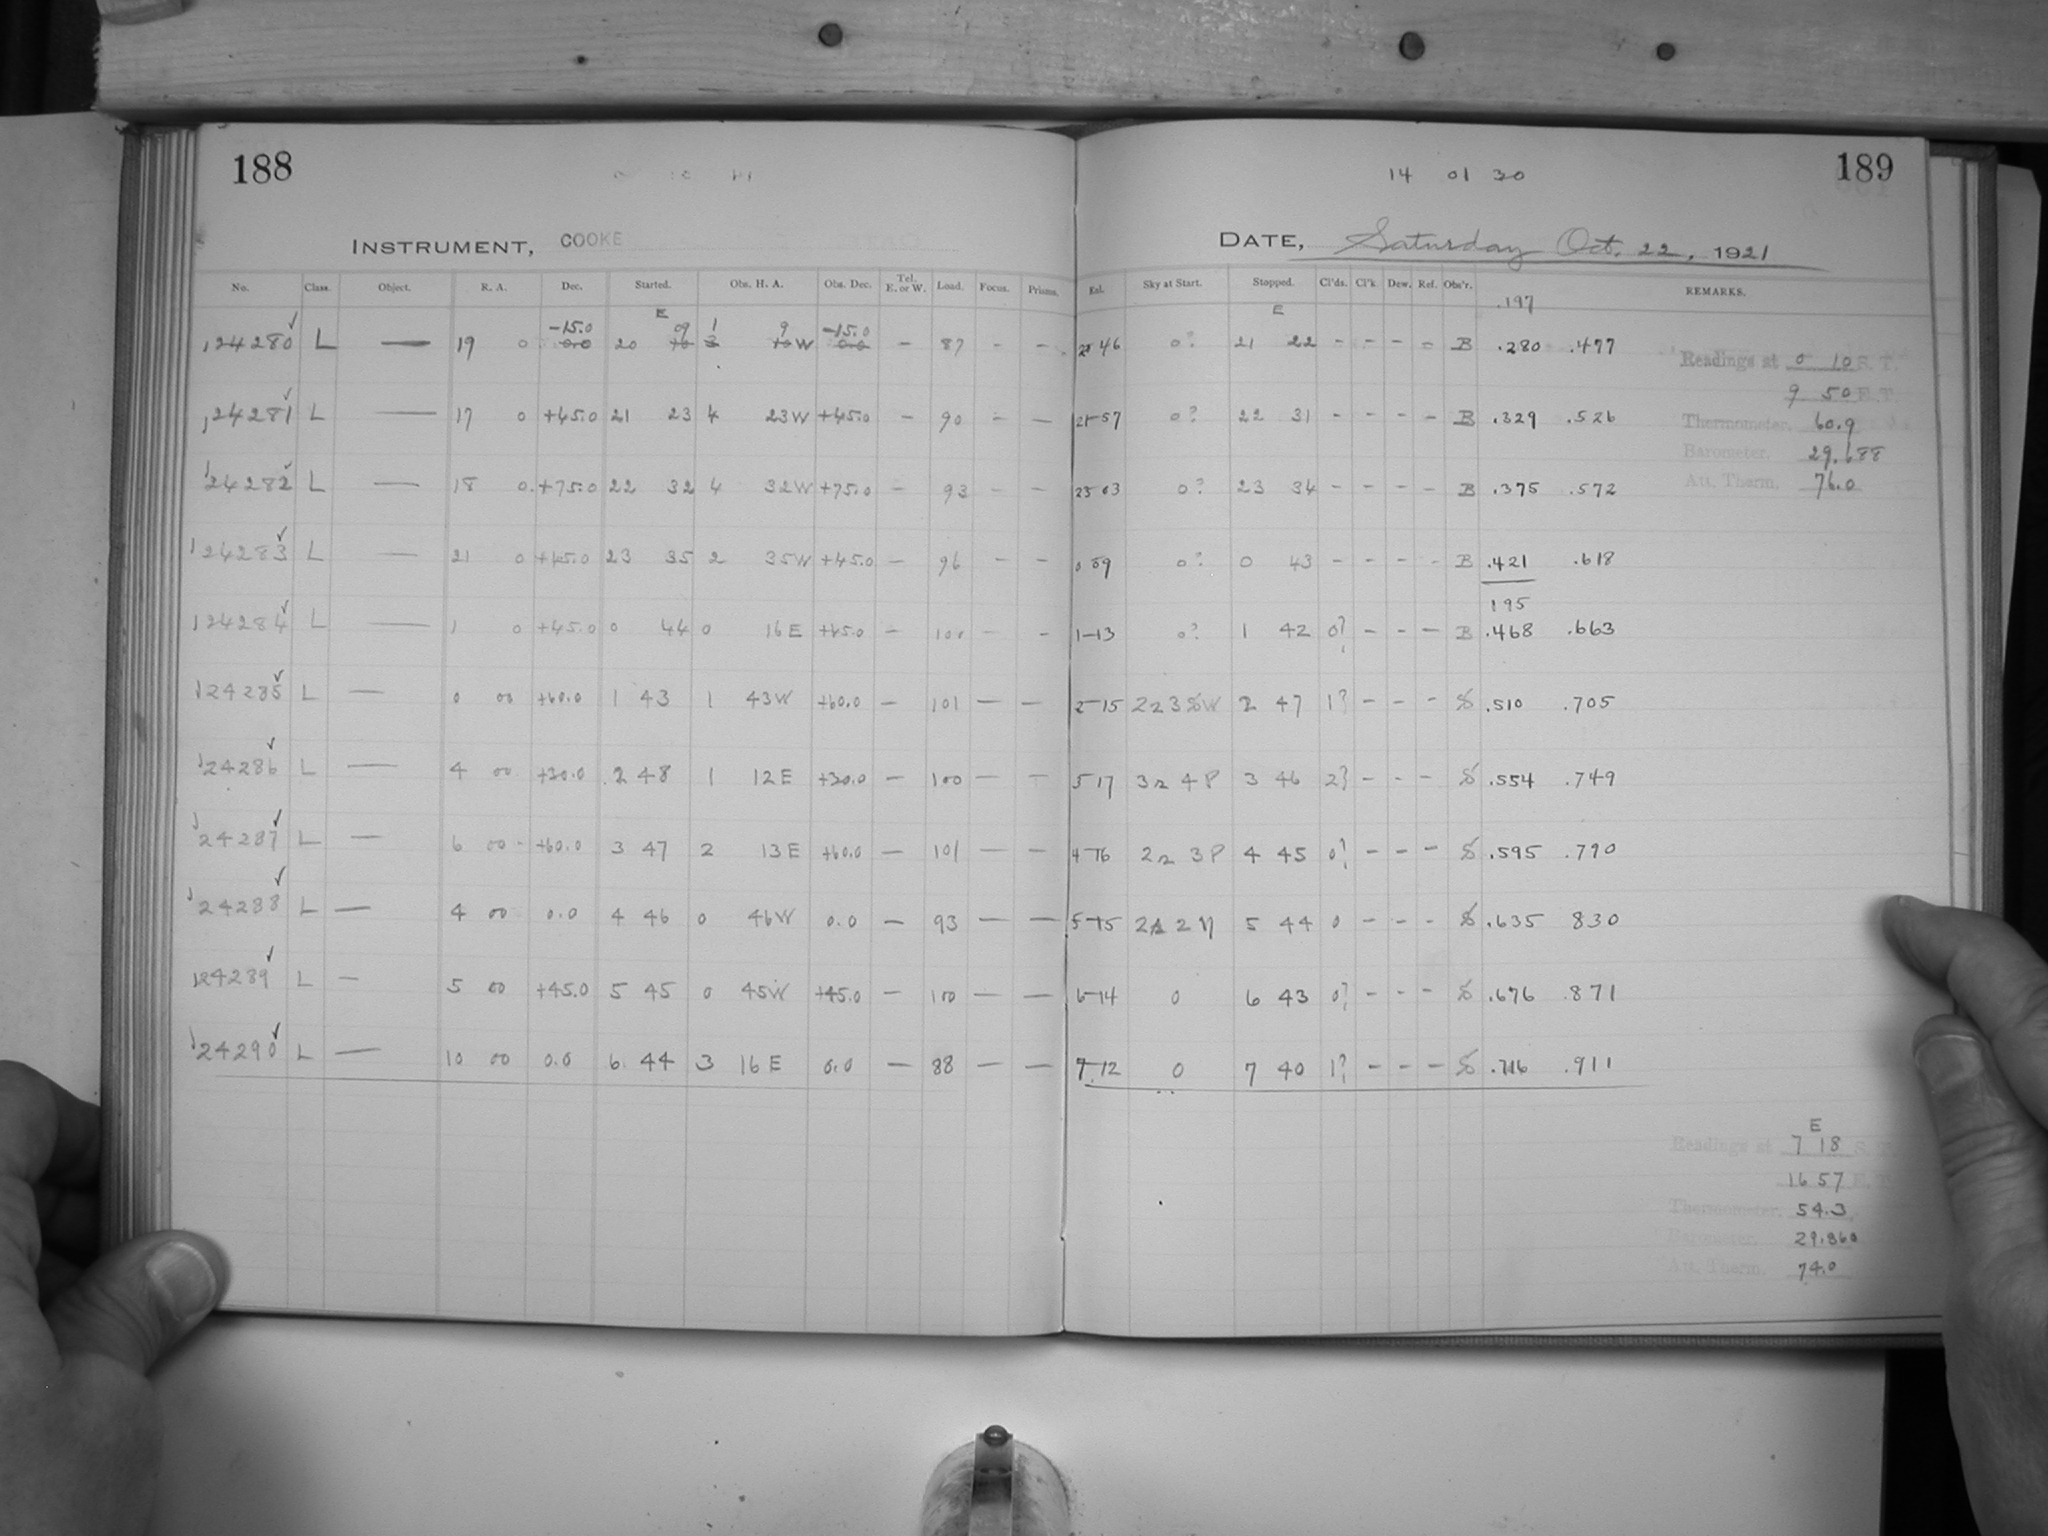 188
INSTRUMENT, COOKE
No. Class. Object. R. A. Dec. Started. Obs. H. A. Obs. Dec. Tel. E. or W. Load. Focus. Prisms.
E
-15.0 09 1 9 -15.0
24280 L — 19 0 0.0 20 10 3 10 W 0.0 - 87 - -
24281 L — 17 0 +45.0 21 23 4 23W +45.0 - 90 - -
24282 L — 18 0 +75.0 22 32 4 32W +75.0 - 93 - -
24283 L — 21 0 +45.0 23 35 2 35W +45.0 - 96 - -
24284 L — 1 0 +45.0 0 44 0 16 E +45.0 - - -
24285 L — 0 00 +60.0 1 43 1 43W +60.0 - 101 - -
24286 L — 4 00 +30.0 2 48 1 12 E +30.0 - 100 - -
24287 L — 6 00 +60.0 3 47 2 13 E +60.0 - 101 - -
24288 L — 4 00 0.0 4 46 0 46W 0.0 - 93 - -
24289 L — 5 00 +45.0 5 45 0 45W +45.0 - 100 - -
24290 L — 10 00 0.0 6 44 3 16 E 0.0 - 88 - -
14 01 30
189
DATE, Saturday Oct. 22, 1921
Exl. Sky at Start. Stopped. Cl'ds. Cl'k. Dew. Ref. Obs'r. REMARKS.
E .197
46 0? 21 22 - - - - B .280 .477
21-57 0? 22 31 - - - - B .329 .526
23 03 0? 23 34 - - - - B .375 .572
0 09 0? 0 43 - - - - B .421 .618
195
1-13 0? 1 42 0? - - - B .468 .663
2-15 2a3SW 2 47 1? - - - S .510 .705
17 3a 4 P 3 46 2? - - - S .554 .749
4-16 2a 3P 4 45 0? - - - S .595 .790
5-15 2a 2 5 44 0 - - - S .635 830
6-14 0 6 43 0? - - - S .676 .871
7-12 0 7 40 1? - - - S .716 .911
Readings at 0 10 S. T.
9 50 E. T.
Thermometer, 60.9
Barometer, 29.688
Att. Therm. 76.0
E
Readings at 7 18 S. T.
16 57 E. T.
Thermometer, 54.3
Barometer, 29.860
Att. Therm. 74.0